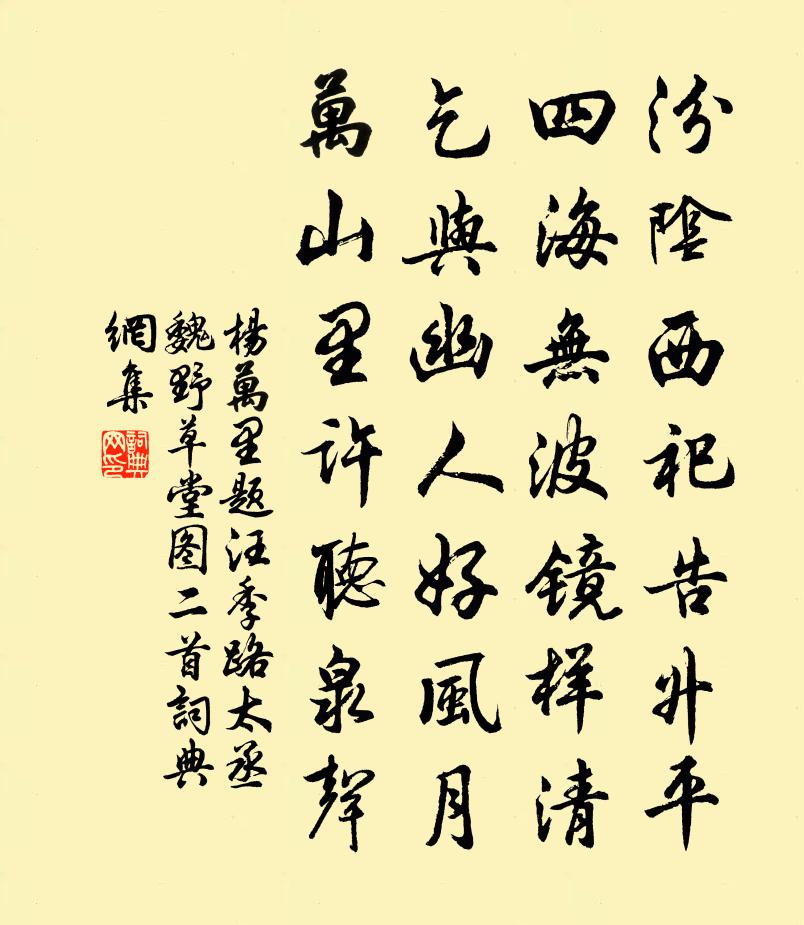 汾陰西祀告升平
四海無波镜样清
乞與幽人好風月
萬山里许聽泉聲
楊萬里題汪季路太丞
魏野草堂图二首詞典
網集
詞典網印